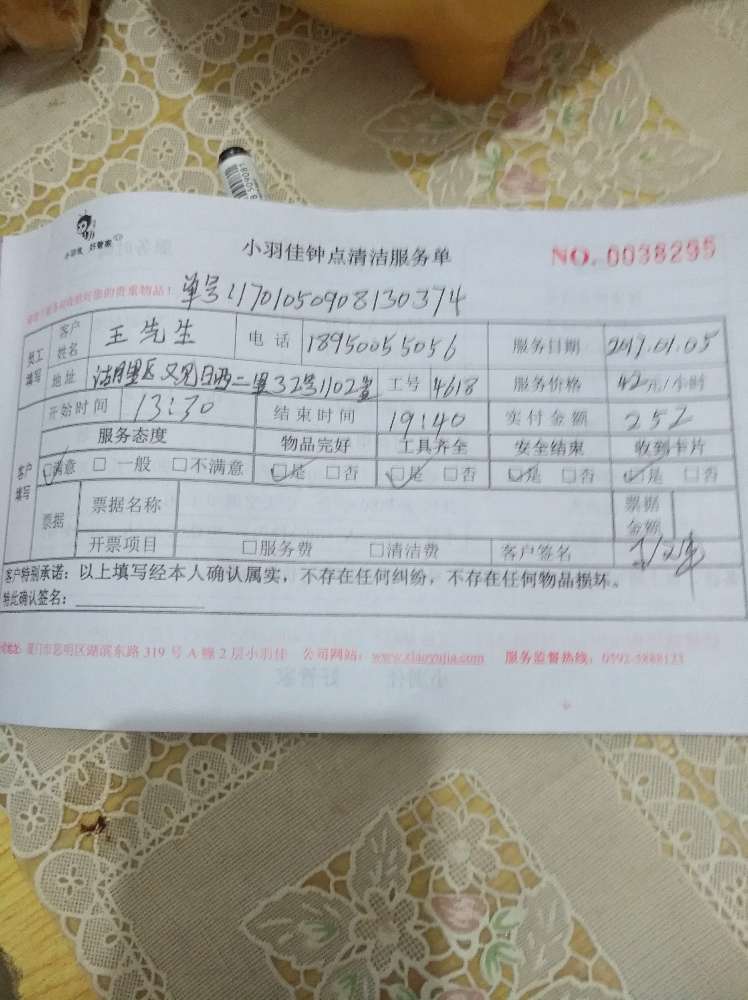 小羽佳 好管家
小羽佳钟点清洁服务单
NO. 0038295
单号:1701050908130374
员工填写 客户姓名 王先生 电话 18950055056 服务日期 2017.01.05
地址 二里32号1102室 工号 4618 服务价格 42元/小时
开始时间 13:30 结束时间 19:40 实付金额 252
客户填写 服务态度 物品完好 工具齐全 安全结束 收到卡片
☑满意 □一般 □不满意 ☑是 □否 ☑是 □否 ☑是 □否 ☑是 □否
票据 票据名称 票据金额
开票项目 □服务费 □清洁费 客户签名
客户特别承诺：以上填写经本人确认属实，不存在任何纠纷，不存在任何物品损坏。
特此确认签名：
公司地址：厦门市思明区湖滨东路 319 号 A 幢 2 层小羽佳 公司网站：www.xiaoyujia.com 服务监督热线：0592-5888123